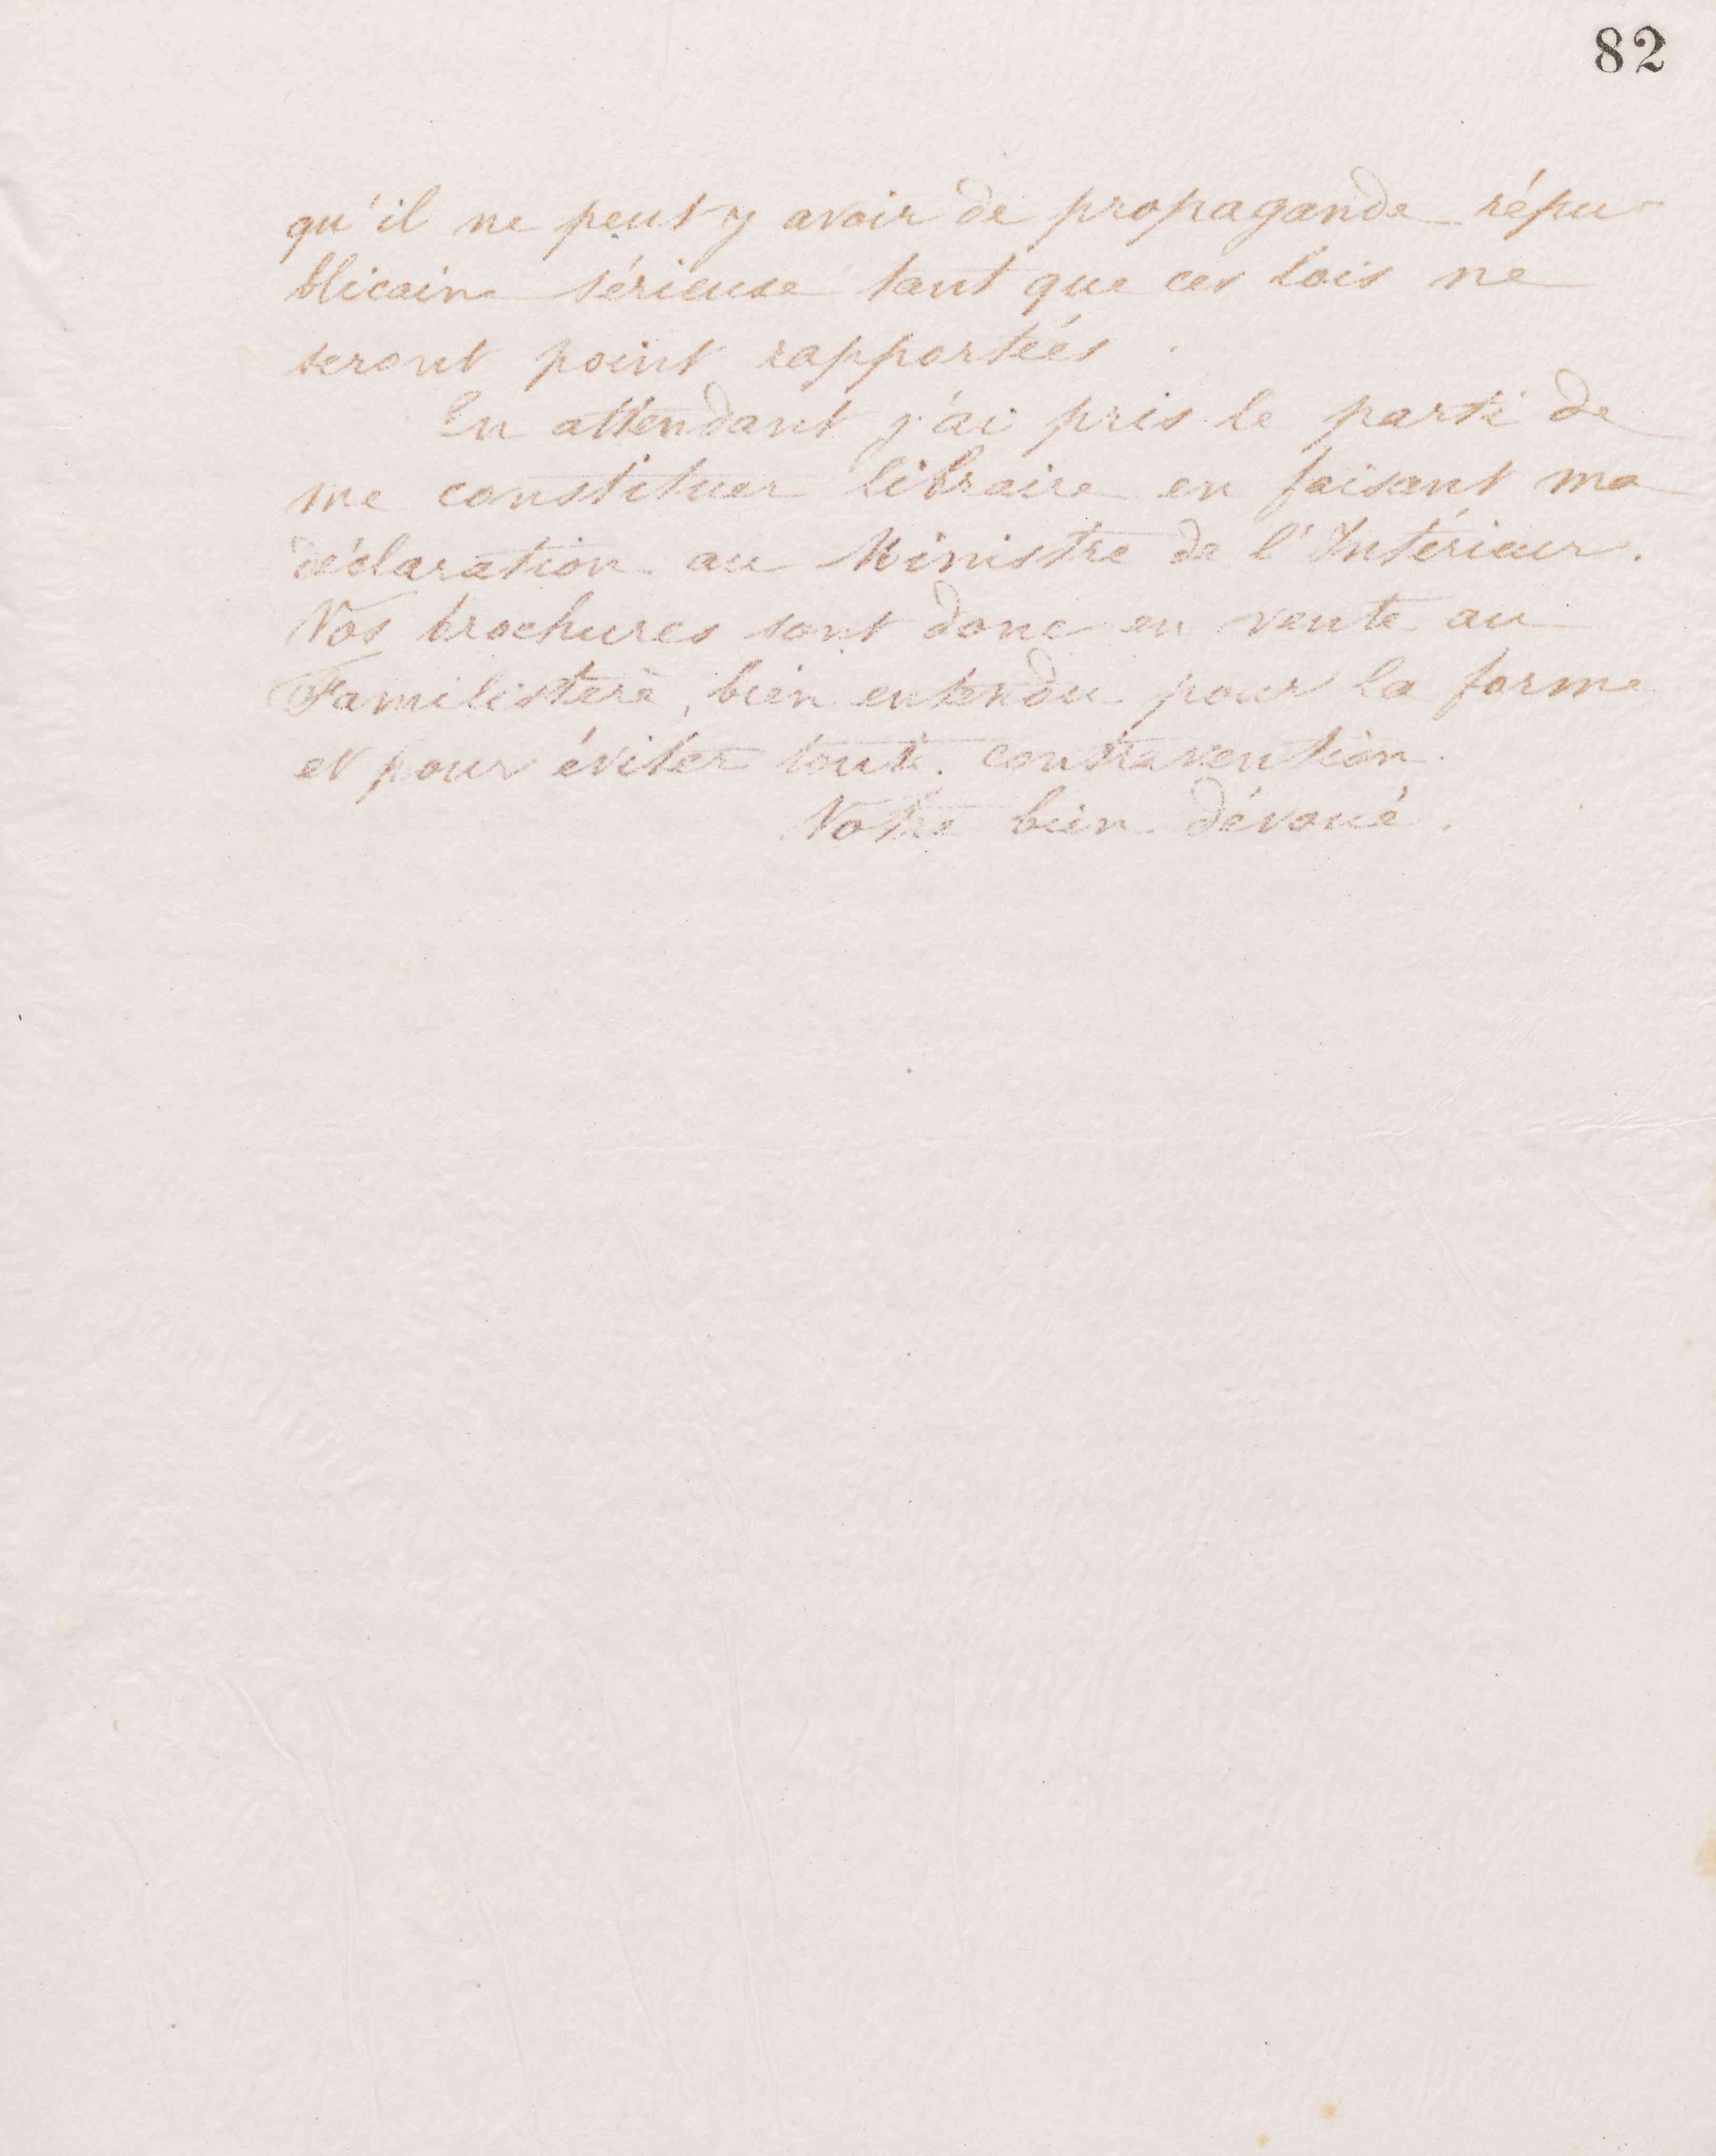 82
qu'il ne peut y avoir de propagande répu-
blicaine sérieuse tant que ces lois ne
seront point rapportées.
En attendant j'ai pris le parti de
me constituer libraire en faisant ma
déclaration au Ministre de l'Intérieur.
Nos brochures sont donc en vente au
Familistère, bien entendu pour la forme
et pour éviter toute contravention.
Votre bien dévoué.